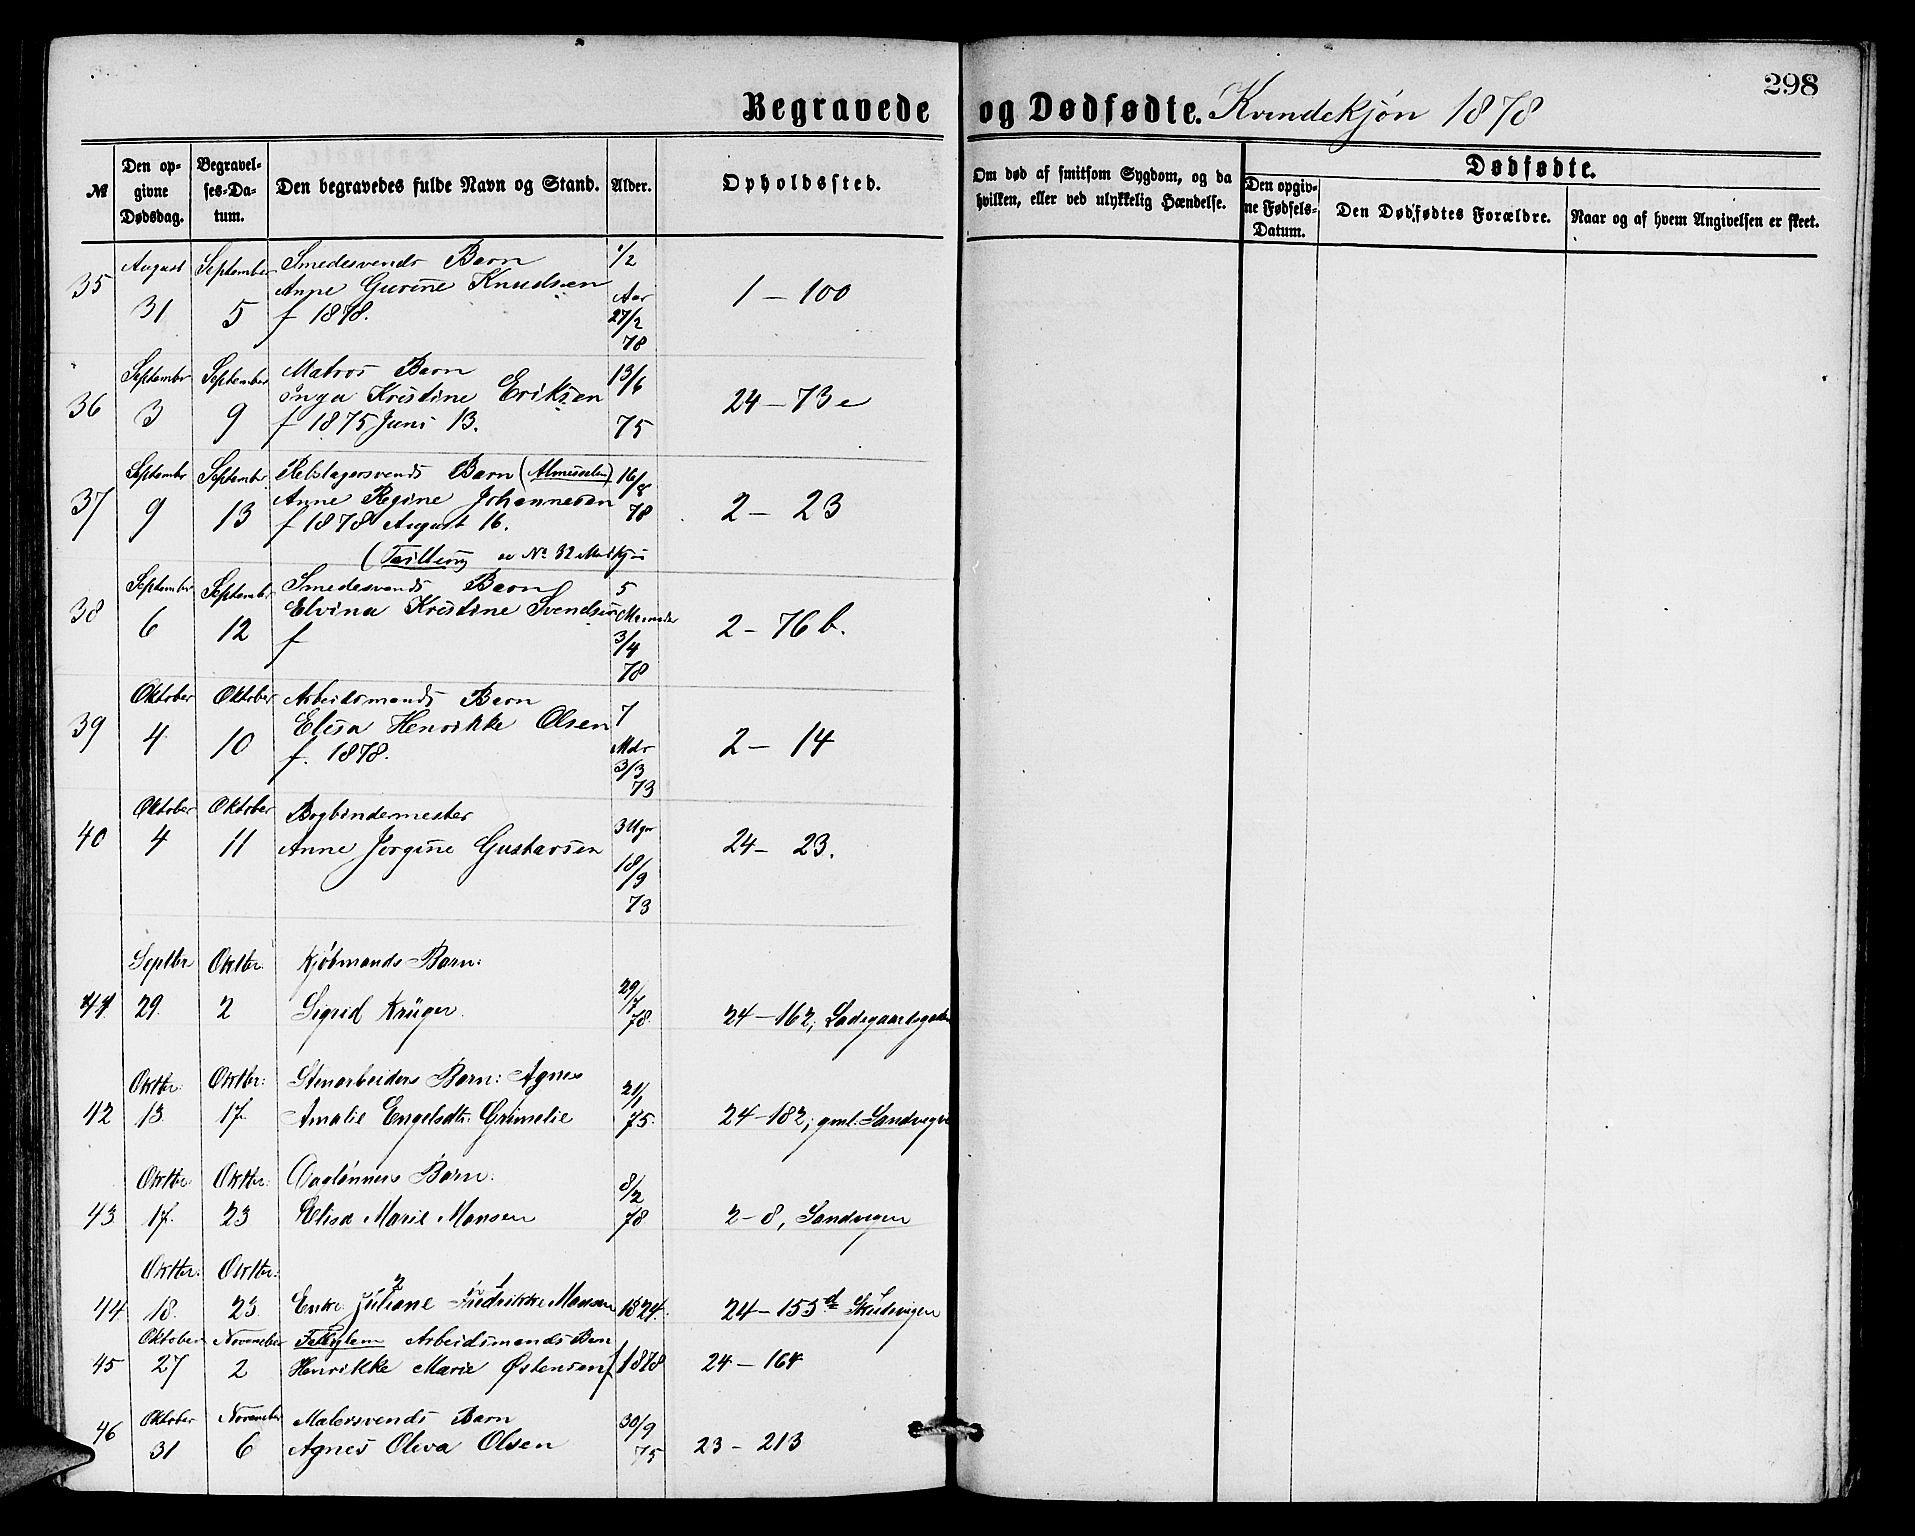 298
Begravede og Dødfødte. Kvindekjøn 1878
№
Den opgivne Dødsdag.
Begravelses-Datum.
Den begravedes fulde Navn og Stand.
Alder.
Opholdssted.
Om død af smitsom Sygdom, og da hvilken, eller ved ulykkelig Hændelse.
Dødfødte.
Den opgivne Fødsels-Datum.
Den Dødfødtes Forældre.
Naar og af hvem Angivelsen er skeet.
August September Smedesvends Barn 1/2
35 31 5 Anne Gurine Knudsen Aar 1 – 100
f 1878. 27/2 78
September September Matros Barn 13/6
36 3 9 Inga Kristine Eriksen 24 – 73e
f 1875 Juni 13. 75
September September Rebslagersvends Barn 16/8
37 9 13 Anne Regine Johannesen 78 2 – 23
f 1878 August 16.
(Tvilling No 32 Mandkjøn
September September Smedesvends Barn 5
38 6 12 Elvina Kristine Svendsen Maaneder 2 – 76 b.
f 3/4 78
Oktober Oktober Arbeidsmands Barn 7
39 4 10 Elisa Henrikke Olsen Mdr 2 – 14
f. 1878. 3/3 73
Oktober Oktober Bogbindermester 3 Uger
40 4 11 Anne Jørgine Gustavsen 24 – 23.
18/9 73
Septbr Oktbr. Kjøbmands Barn:
41 29. 2 Sigrid Krüger. 29/7 78. 24 – 162, Ladegaardsgaden
Oktbr: Oktbr: Stenarbeiders Barn: Agnes
42 13. 17. Amalie Engelsdtr: Grimelie 21/1 75. 24 – 182, gml. Sandvegv
Oktbr: Oktbr: Dagløners Barn:
43 17. 23 Elisa Marie Monsen 8/2 78 2 – 8, Sandvegen
Oktbr: Oktbr:
2 1
44 18. 23 Enke Juliane Fredrikke Monsen 1824. 24 – 153d Skudevigen
Oktober November Arbeidsmands Barn
45 27 2 Henrikke Marie Østensen f 1878 24 – 164
Oktober November Malersvends Barn 30/9
46 31 6 Agnes Oliva Olsen 75 23 – 213